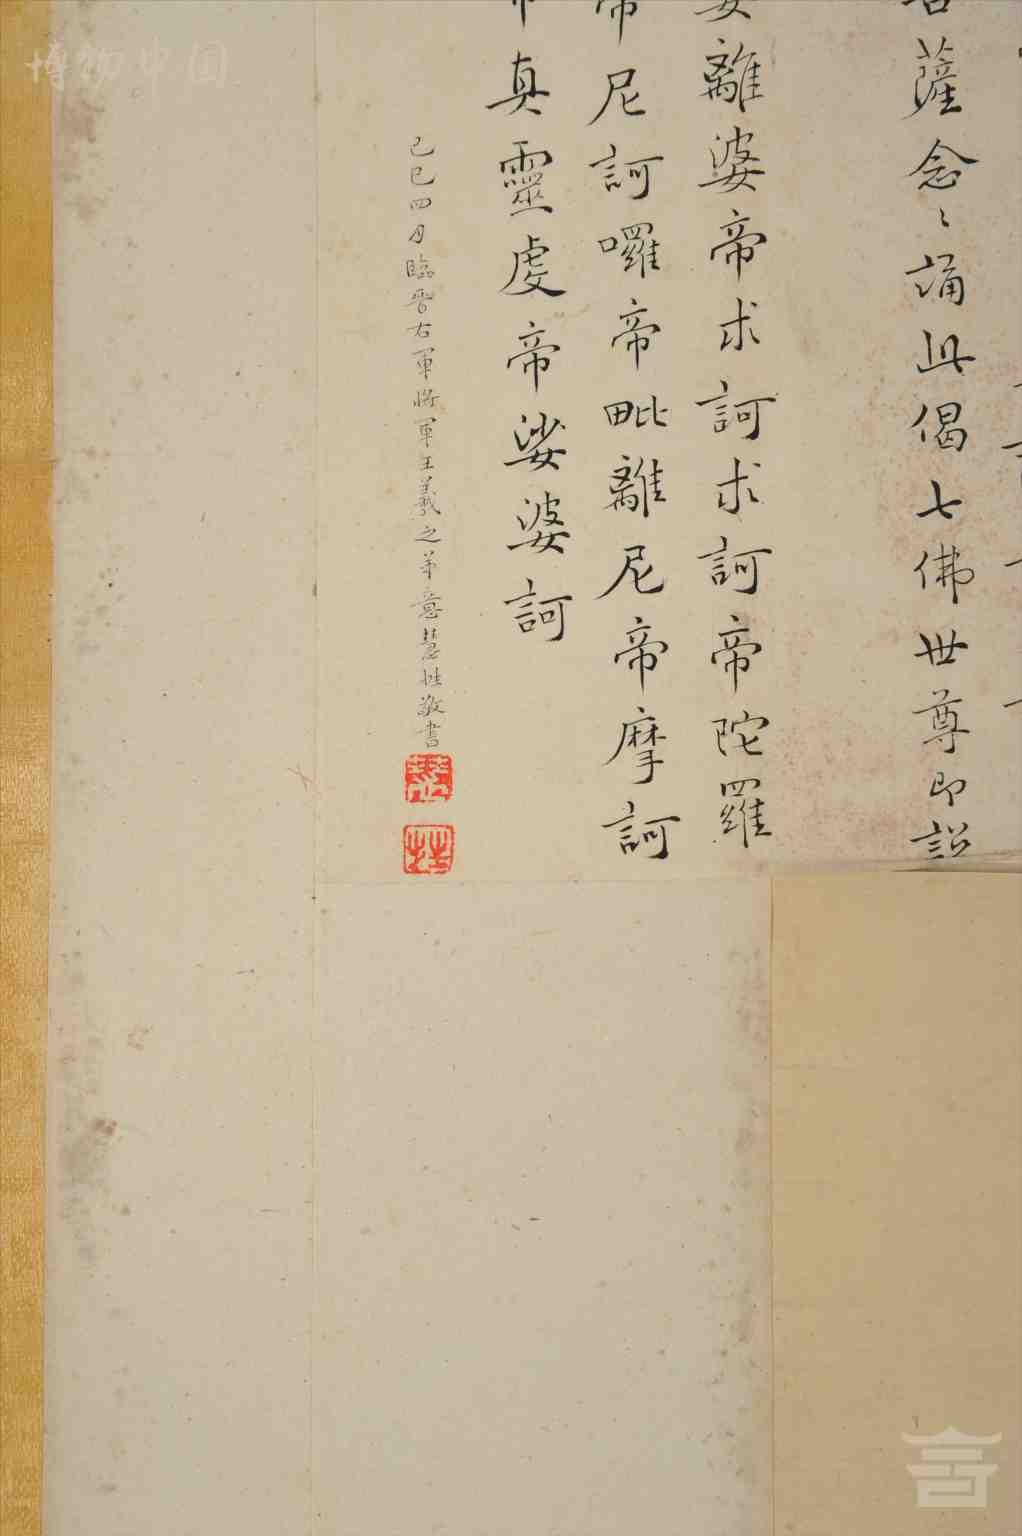 薩念〻誦此偈七佛世尊即説
離婆帝求訶求訶帝陀羅
帝尼訶囉帝毗離尼帝摩訶
真靈虔帝娑婆訶
己巳四月臨晉右軍將軍王羲之筆意慧性敬書
博物中国